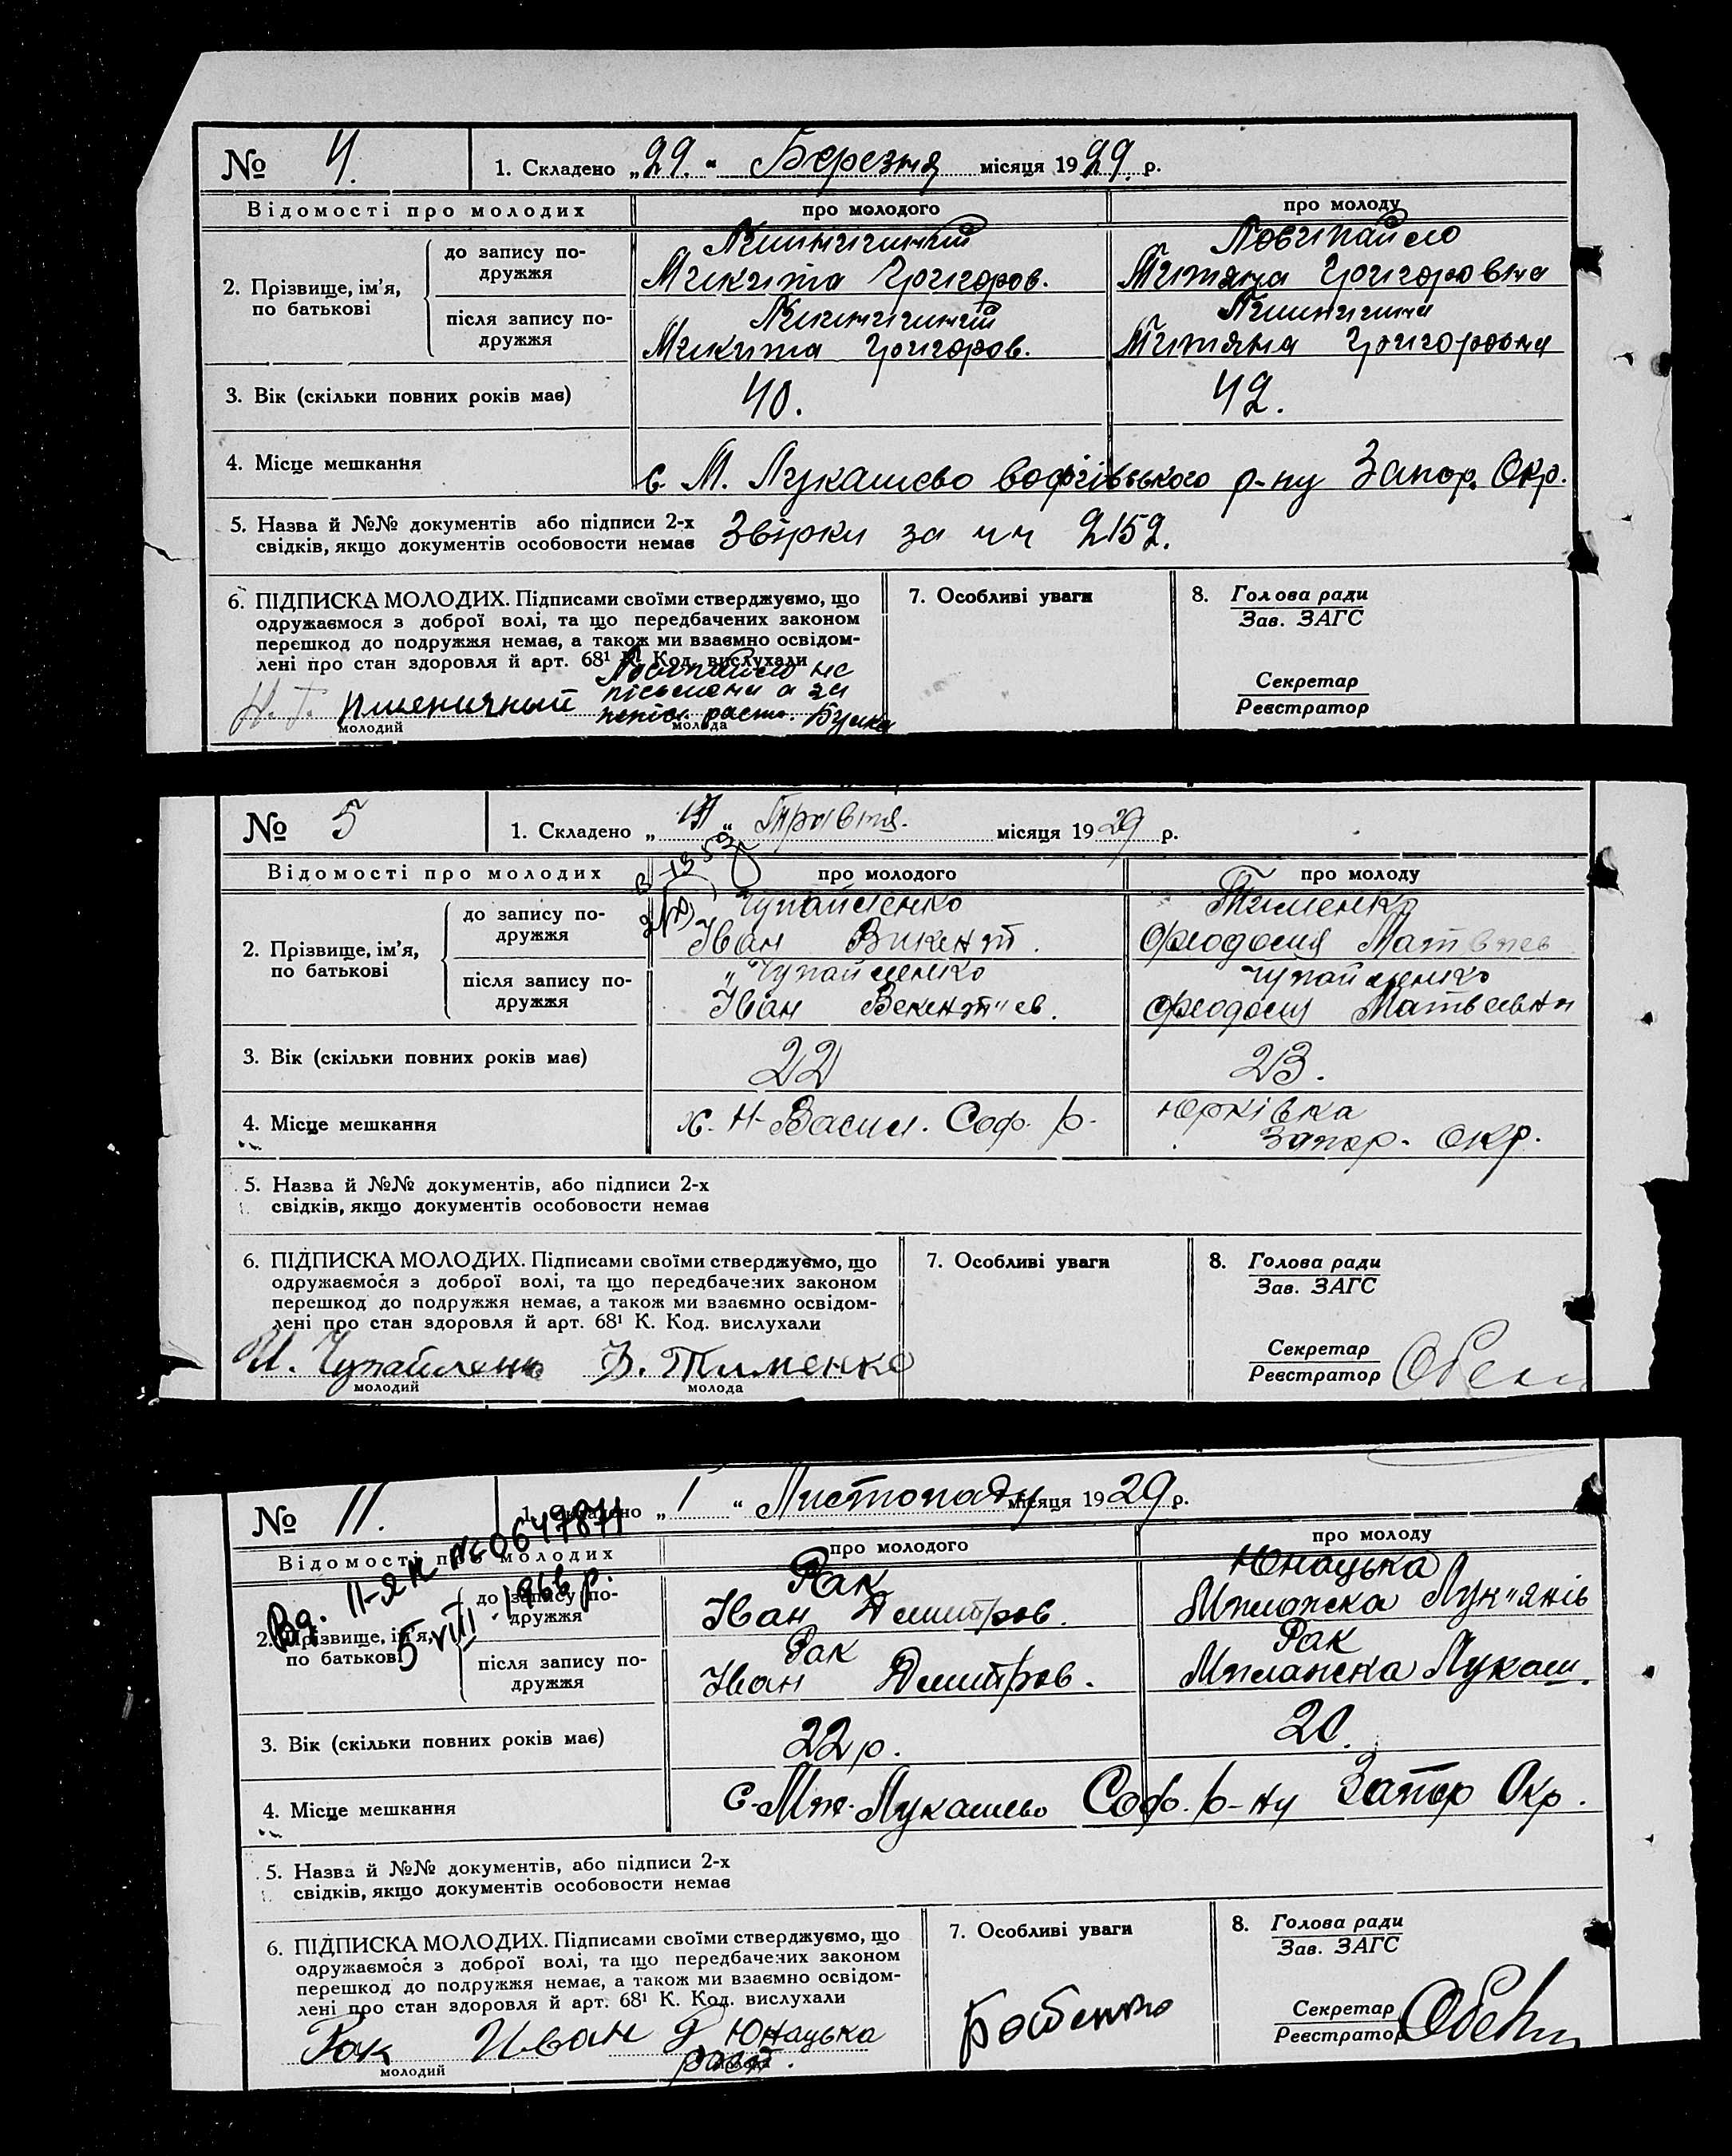 № 4. 1. Складено „29.“ Березня місяця 1929. р.
Відомості про молодих про молодого про молоду
2. Прізвище, ім’я, по батькові
до запису подружжя
Микита Григоров.
Григоровна
після запису подружжя
Микита Григоров.
Григоровна
3. Вік (скільки повних років має) 40. 42.
4. Місце мешкання с. М. Лукашево р-ну Запор. Окр.
5. Назва й №№ документів або підписи 2-х
свідків, якщо документів особовости немає
за 2152.
6. ПІДПИСКА МОЛОДИХ. Підписами своїми стверджуємо, що
одружаємося з доброї волі, та що передбачених законом
перешкод до подружжя немає, а також ми взаємно освідом-
лені про стан здоровля й арт. 68¹ К. Код. вислухали
Пшеничный
молодий молода
7. Особливі уваги
8. Голова ради
Зав. ЗАГС
Секретар
Реєстратор
№ 5 1. Складено „ “ Травня. місяця 1929 р.
Відомості про молодих про молодого про молоду
2. Прізвище, ім’я, по батькові
до запису подружжя
Чупайленко Тименко
Іван Викент. Феодосия
після запису подружжя
Чупайленко Чупайленко
Іван Векентиев. Феодосия
3. Вік (скільки повних років має) 22 23.
4. Місце мешкання х. Н-Васил. Соф. р. Юрківка
Запор. окр.
5. Назва й №№ документів, або підписи 2-х
свідків, якщо документів особовости немає
6. ПІДПИСКА МОЛОДИХ. Підписами своїми стверджуємо, що
одружаємося з доброї волі, та що передбачених законом
перешкод до подружжя немає, а також ми взаємно освідом-
лені про стан здоровля й арт. 68¹ К. Код. вислухали
И. Чупайленко Тименко
молодий молода
7. Особливі уваги
8. Голова ради
Зав. ЗАГС
Секретар
Реєстратор
№ 11. 1. Складено „1“ Листопаду місяця 1929 р.
Відомості про молодих про молодого про молоду
Вд. II-ЯК
5 VIII 1966 р.
2. Прізвище, ім’я, по батькові
до запису подружжя
Рак Юнацька
Іван Дмитров. Лук"янів
після запису подружжя
Рак Рак
Іван Дмитров. Лукаш.
3. Вік (скільки повних років має) 22 р. 20.
4. Місце мешкання Лукашево Соф. р-ну Запор Окр.
5. Назва й №№ документів, або підписи 2-х
свідків, якщо документів особовости немає
6. ПІДПИСКА МОЛОДИХ. Підписами своїми стверджуємо, що
одружаємося з доброї волі, та що передбачених законом
перешкод до подружжя немає, а також ми взаємно освідом-
лені про стан здоровля й арт. 68¹ К. Код. вислухали
Рак Иван Юнацька
молодий
7. Особливі уваги
8. Голова ради
Зав. ЗАГС
Секретар
Реєстратор